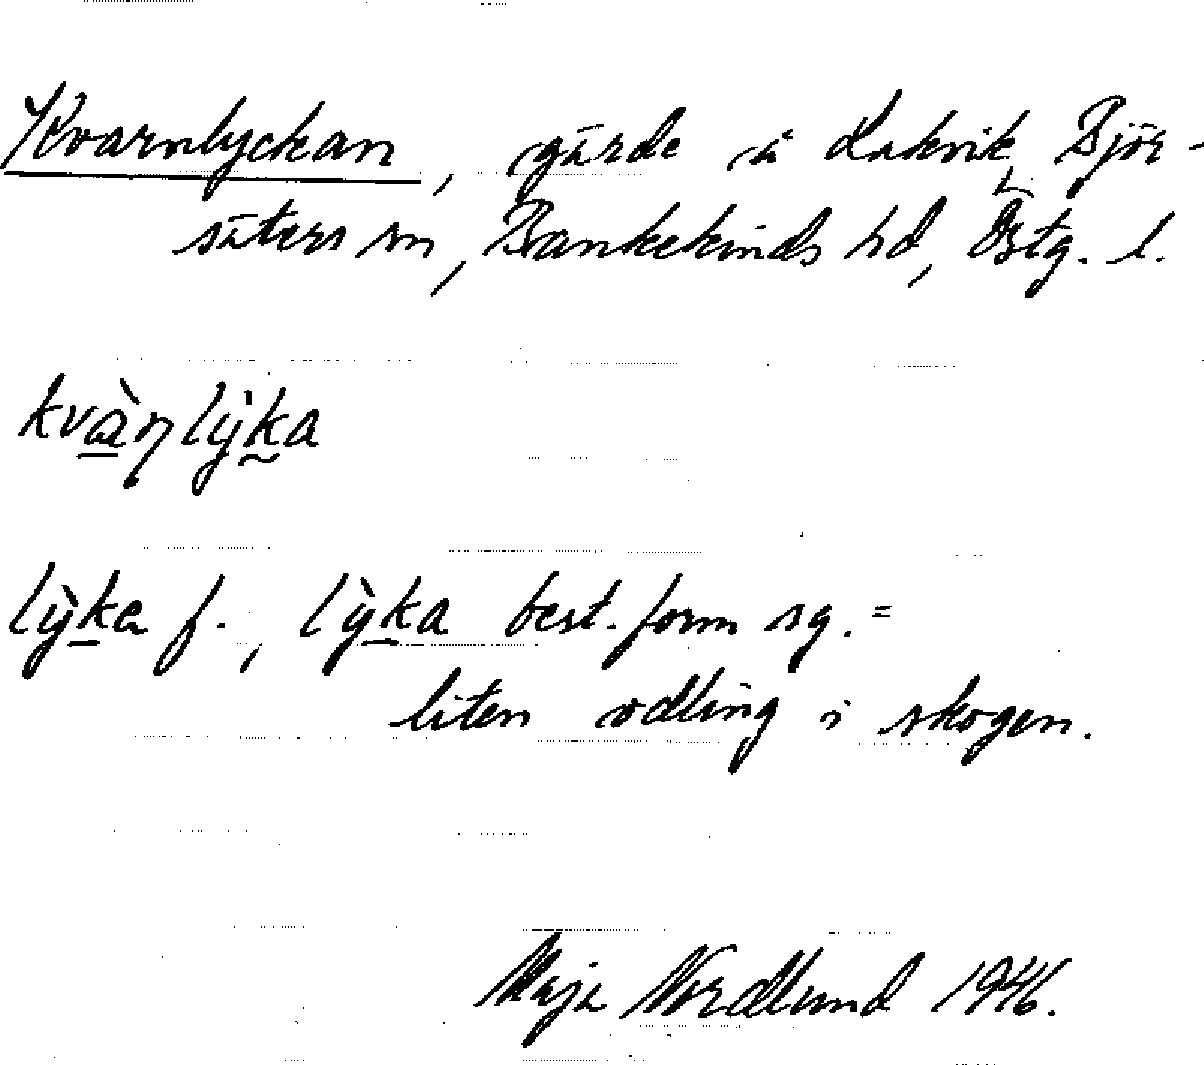 Kvarnlyckan, gärde å Lakvik, Björ-
säters sn, Bankekinds hd, Östg. l.
kvàɳlỳka
lỳka f., lỳka best. form sg. =
liten odling i skogen.
Maja Nordlund 1946.